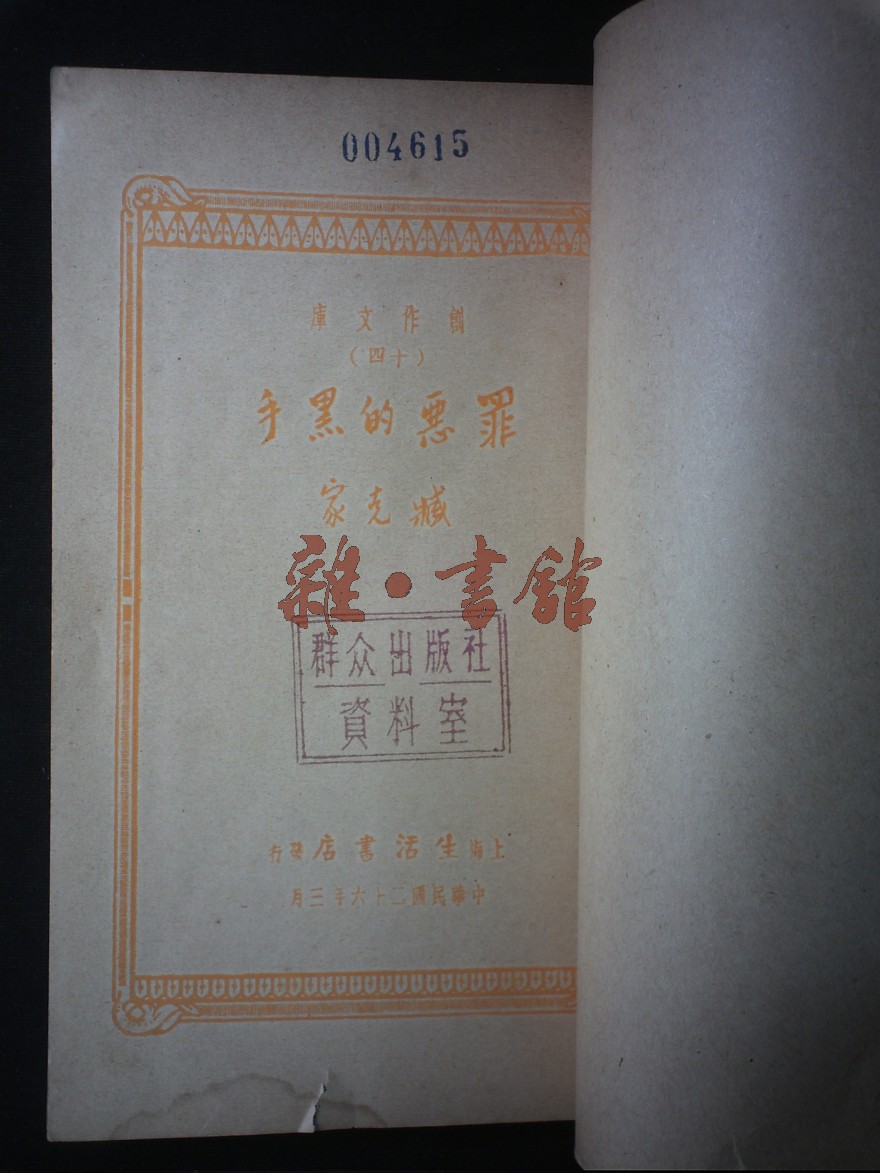 004615
創作文庫
（十四）
罪惡的黑手
臧克家
雜·書館
群众出版社
資料室
上海生活書店發行
中華民國二十六年三月